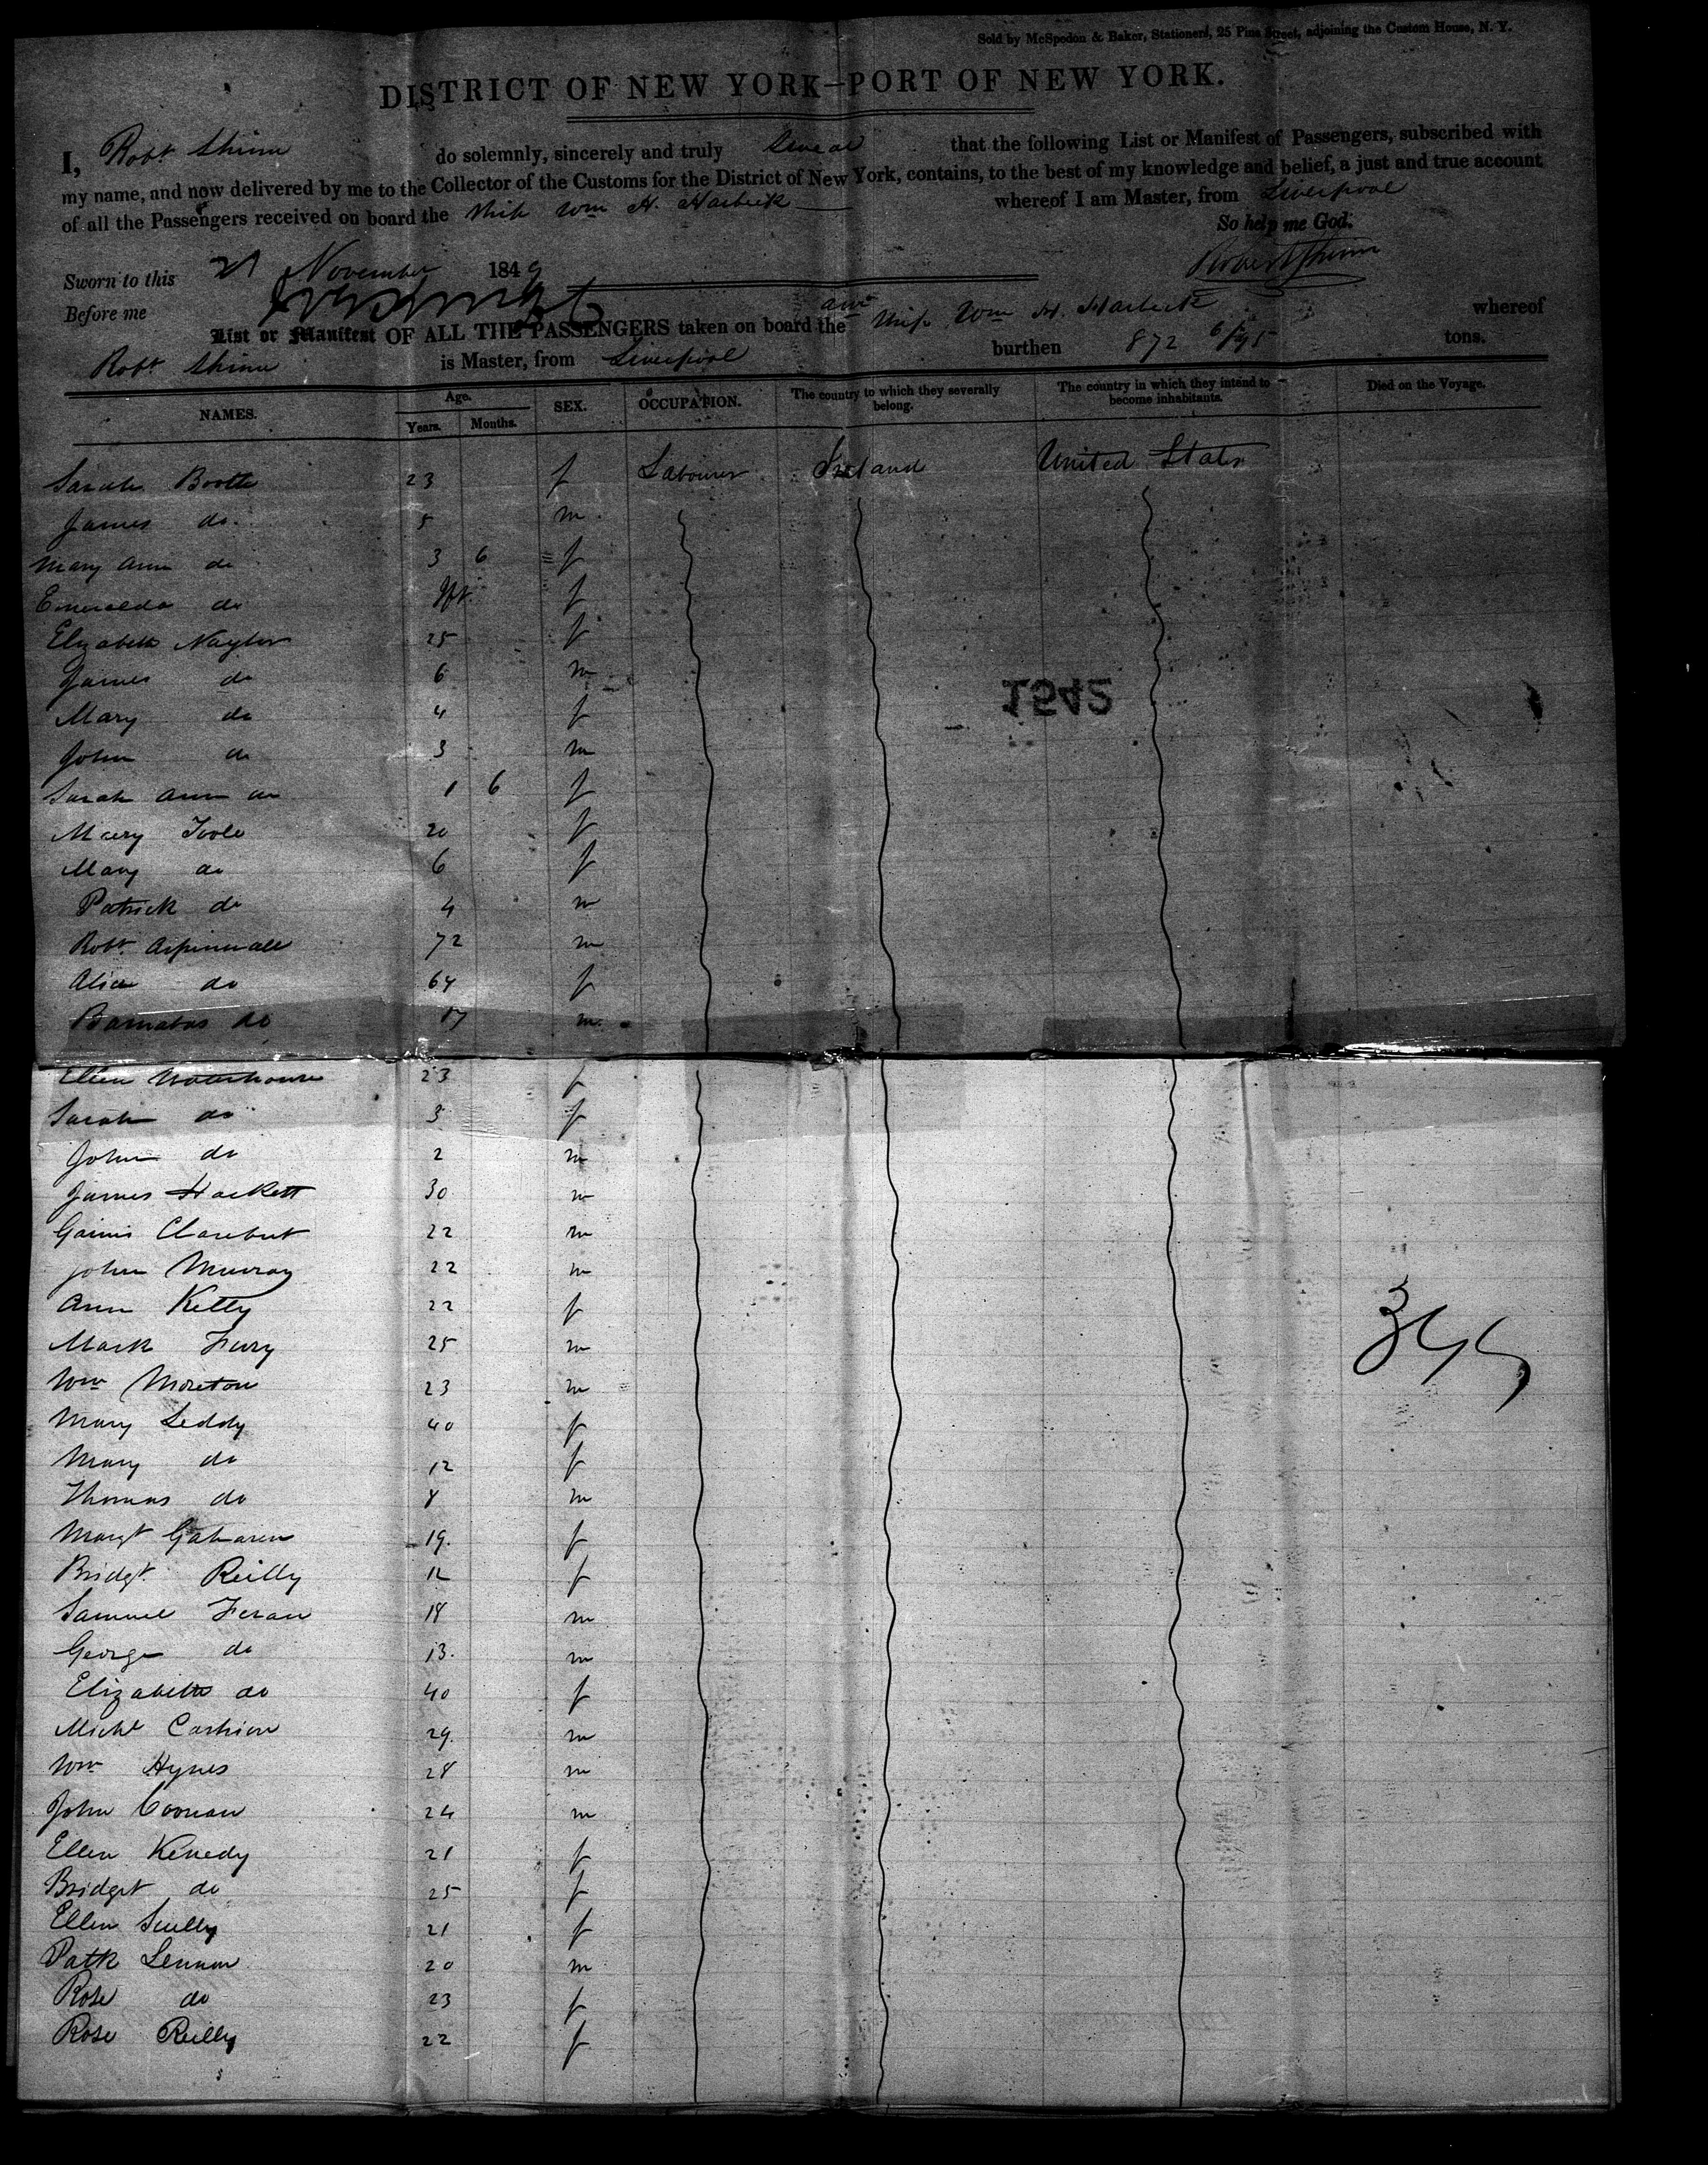 Sold by McSpedon & Baker, Stationers, 25 Pine Street, adjoining the Custom House, N. Y.
DISTRICT OF NEW YORK—PORT OF NEW YORK.
I, Robt Shinn do solemnly, sincerely and truly Swear that the following List or Manifest of Passengers, subscribed with
my name, and now delivered by me to the Collector of the Customs for the District of New York, contains, to the best of my knowledge and belief, a just and true account
of all the Passengers received on board the Ship Wm H. Harbeck whereof I am Master, from Liverpool
So help me God.
Sworn to this 21 November 1849 Robert Shinn
Before me
List or Manifest OF ALL THE PASSENGERS taken on board the Ship Wm H. Harbeck whereof
Robt Shinn is Master, from Liverpool burthen 872 6/95 tons.
NAMES. Age. Years. Months. SEX. OCCUPATION. The country to which they severally belong. The country in which they intend to become inhabitants. Died on the Voyage.
Sarah Booth 23 f Labourer Ireland United States
James do. 5 m
Mary Ann do 3 6 f
Esmeralda do Inft. f
Elizabeth Naylor 25 f
James do 6 m
Mary do 4 f
1542
John do 3 m
Sarah Ann do 1 6 f
Mary Toole 20 f
Mary do 6 f
Patrick do 4 m
Robt. Aspinwall 72 m
Alice do 64 f
Barnabas do 17 m.
Ellen Waterhouse 23 f
Sarah do 3 f
John do 2 m
James Hackett 30 m
22 m
John Murray 22 m
Ann Kelly 22 f
Mark Fury 25 m
Wm Moreton 23 m
Mary Leddy 40 f
Mary do 12 f
Thomas do 8 m
Margt 19. f
Bridgt. Reilly 12 f
Samuel Feran 18 m
George do 13. m
Elizabeth do 40 f
Michl Cashion 29. m
Wm Hynes 28 m
John Coonan 24 m
Ellen Kenedy 21 f
Bridget do 25 f
Ellen Scully 21 f
Patk Lennon 20 m
Rose do 23 f
Rose Reilly 22 f